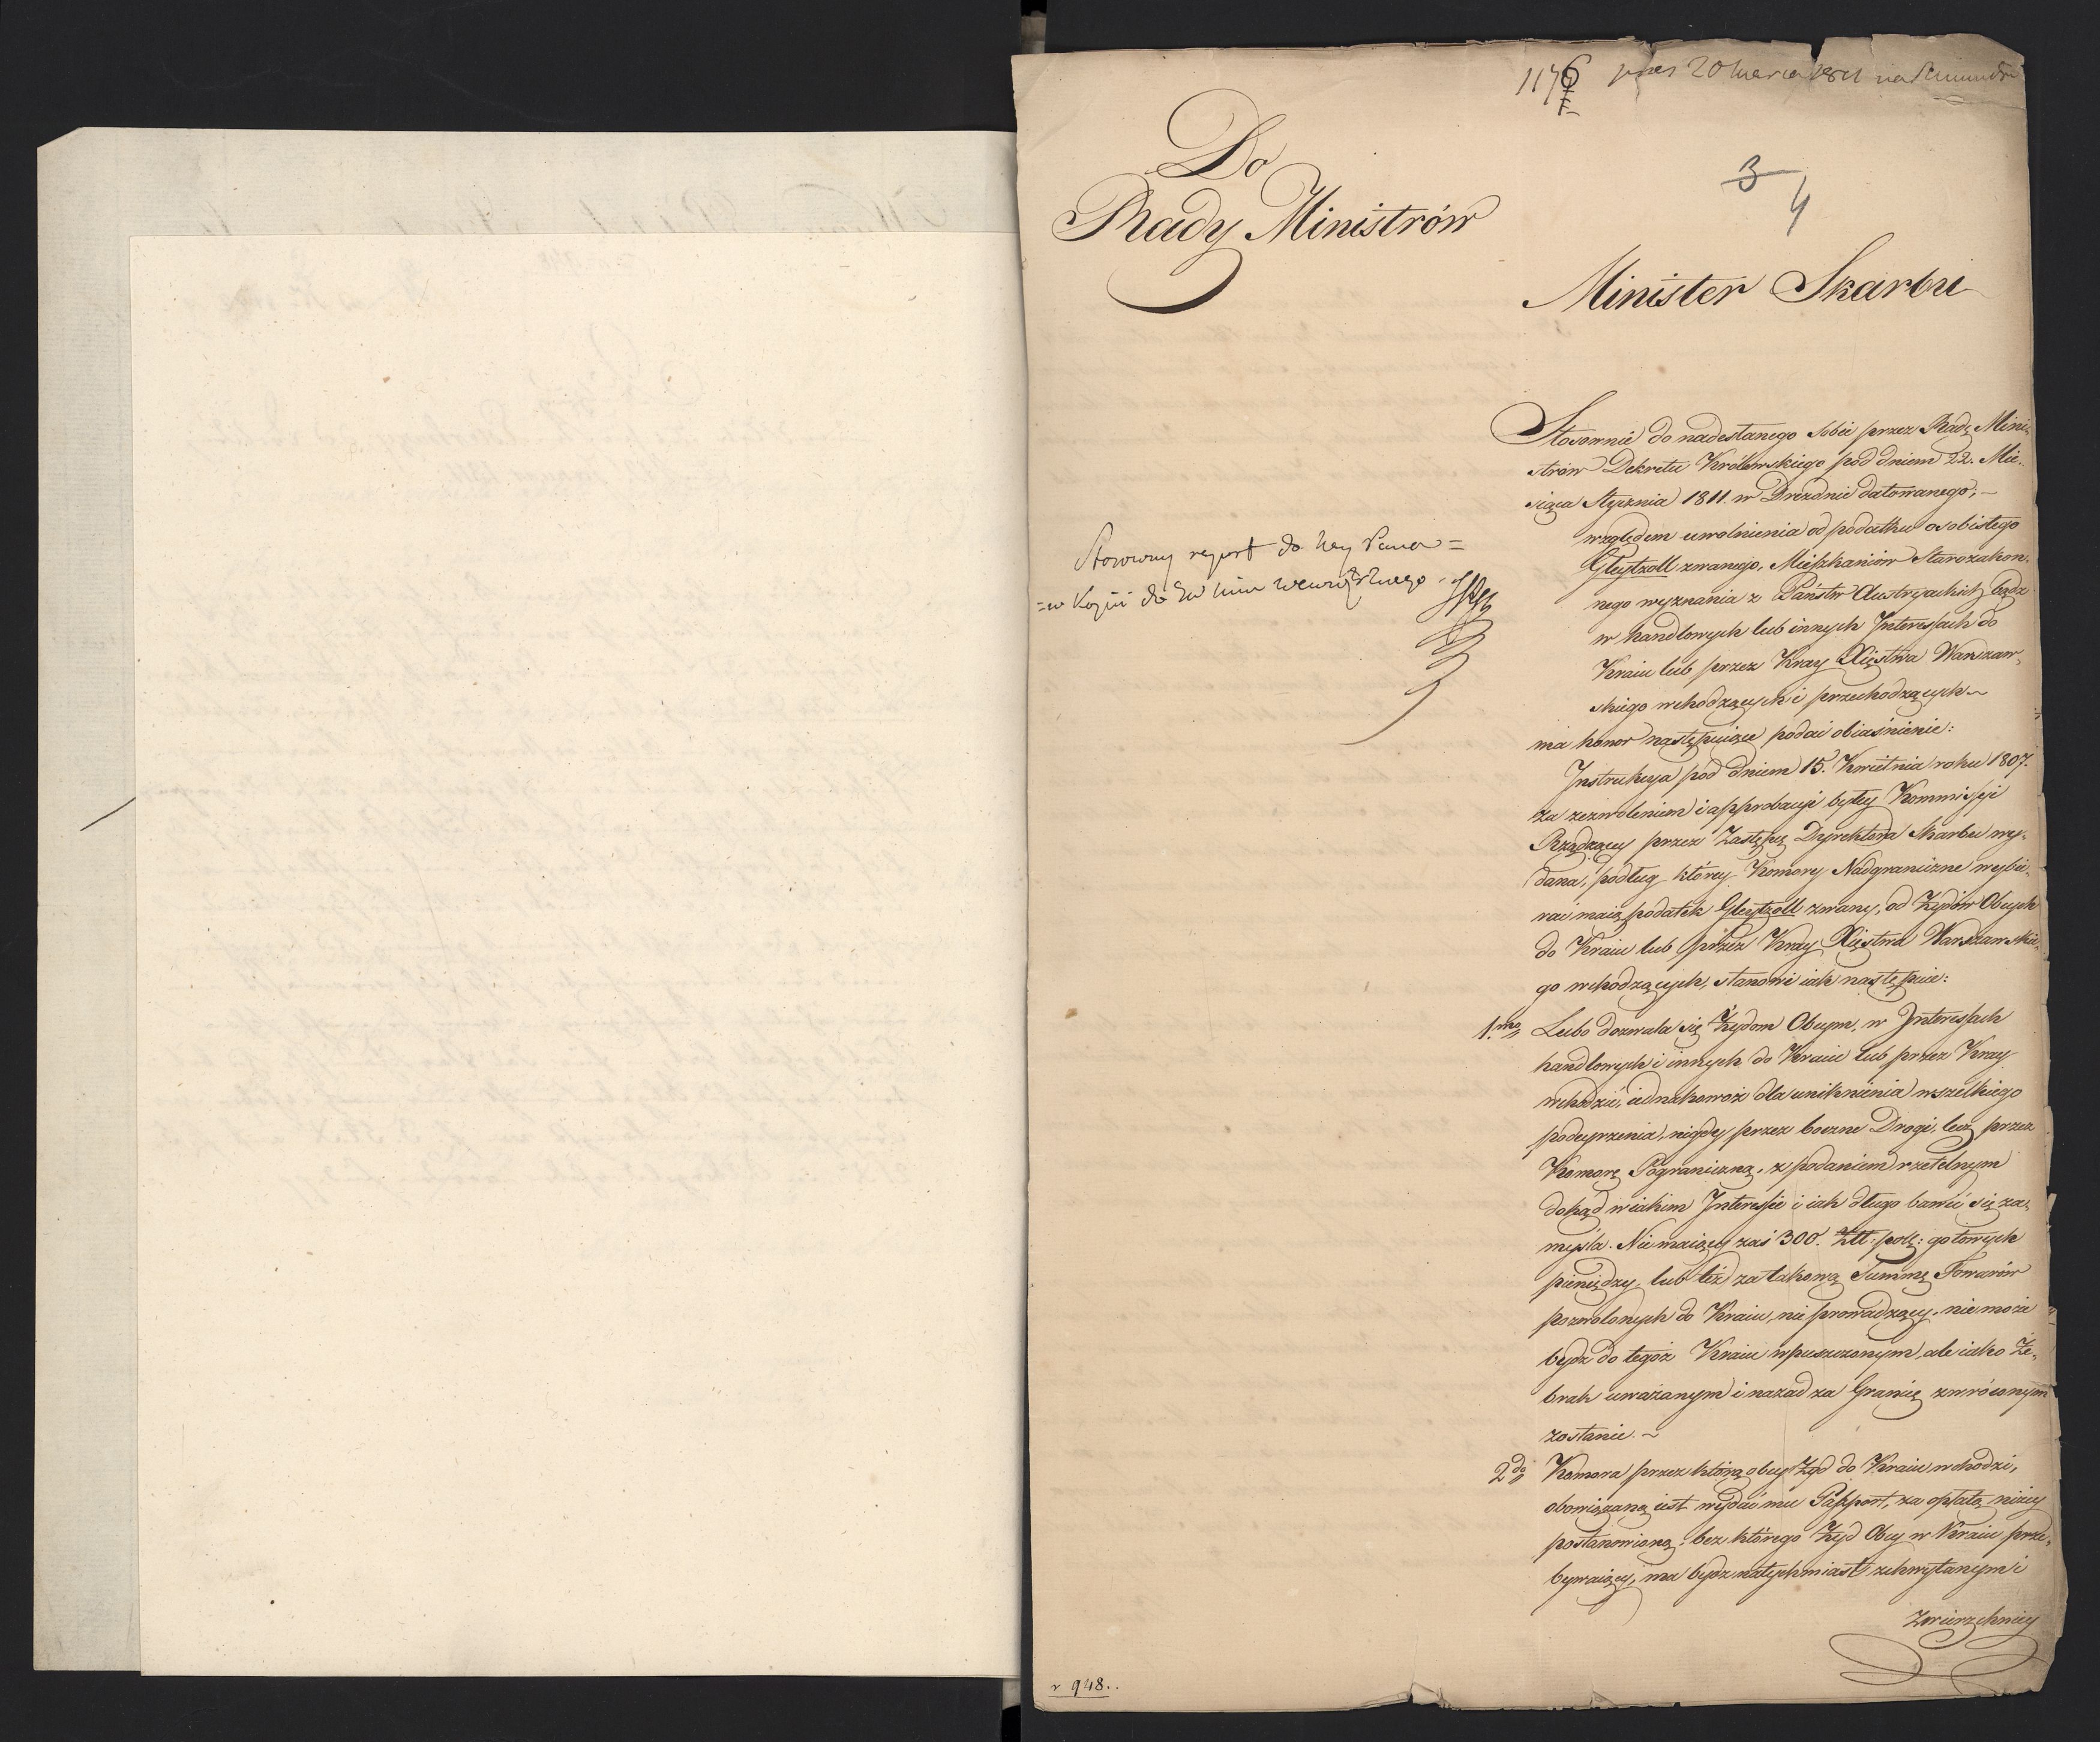 1176 pres 20 marca 1811 na
3
4
Do
Rady Ministrów
Minister Skarbu
Stosownie do nadesłanego sobie przez Radę Mini-
strów Dekretu Królewskiego pod dniem 22. Mie-
siąca Stycznia 1811. w Dreznie datowanego; ~
względem uwolnienia od podatku osobistego
Gleytzoll zwanego, Mieszkańców Starozakon-
nego wyznania z Państw Austryackich, bądz
w handlowych lub innych Interessach do
Kraiu lub przez Kray Xięstwa Warszaw-
skiego wchodzących i przechodzących ~
ma honor następuiące podać obiaśnienie:
Instrukcya pod dniem 15. Kwietnia roku 1807.
za zezwoleniem i approbacyi byłey Kommissyi
Rządzącey przez Zastępcę Dyrektora Skarbu wy-
dana, podług którey Komory Nadgraniczne wybie-
rać maią podatek Gleytzoll zwany, od Żydów Obcych
do Kraiu lub przez Kray Xięstwa Warszawskie-
go wchodzących, stanowi iak następuie:
1mo Lubo dozwala się Żydom Obcym, w Interessach
handlowych i innych do Kraiu lub przez Kray
wchodzić, iednakowoż dla uniknienia wszelkiego
podeyrzenia, nigdy przez boczne Drogi, lecz przez
Komorę Pograniczną, z podaniem rzetelnym
dokąd w iakim Interessie i iak długo bawić się za-
myśla. Nie maiący zaś 300. złł: pols: gotowych
pieniędzy, lub też za takową Summę Towarów
pozwolonych do Kraiu, nie prowadzący, nie może
bydz do tegoż Kraiu wpuszczonym, ale iako Że-
brak uważanym i nazad za Granicę zwróconym
zostanie. ~
2do Komora przez którą obcy Żyd do Kraiu wchodzi,
obowiązaną iest wydać mu Passport, za opłatą niżey
postanowioną, bez którego Żyd Obcy w Kraiu prze-
bywaiący, ma bydz natychmiast schwytanym i
Zwierzchniey
Stosowny report do Ney Pana =
r 948..